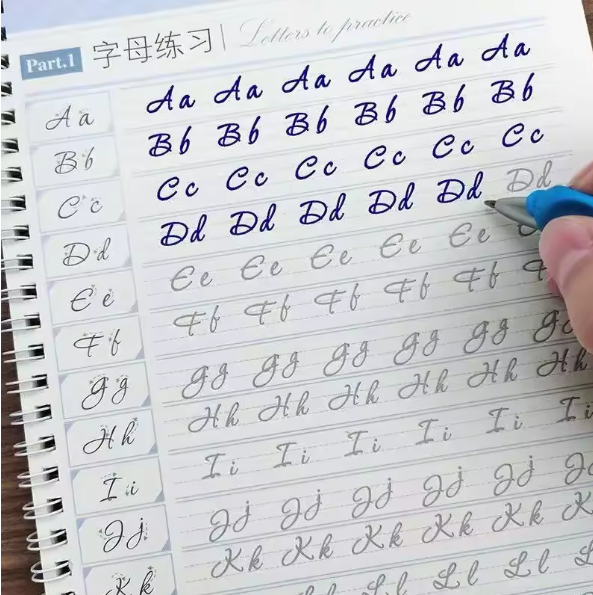 Part.1 字母练习 Letters to practice
Aa Aa Aa Aa Aa Aa Aa
Bb Bb Bb Bb Bb Bb Bb
Cc Cc Cc Cc Cc Cc Cc
Dd Dd Dd Dd Dd Dd Dd
Ee Ee Ee Ee Ee Ee
Ff Ff Ff Ff Ff Ff
Gg Gg Gg Gg Gg Gg
Hh Hh Hh Hh Hh Hh Hh
Ii Ii Ii Ii Ii Ii Ii
Jj Jj Jj Jj Jj Jj
Kk Kk Kk Kk Kk Kk
Ll Ll Ll Ll